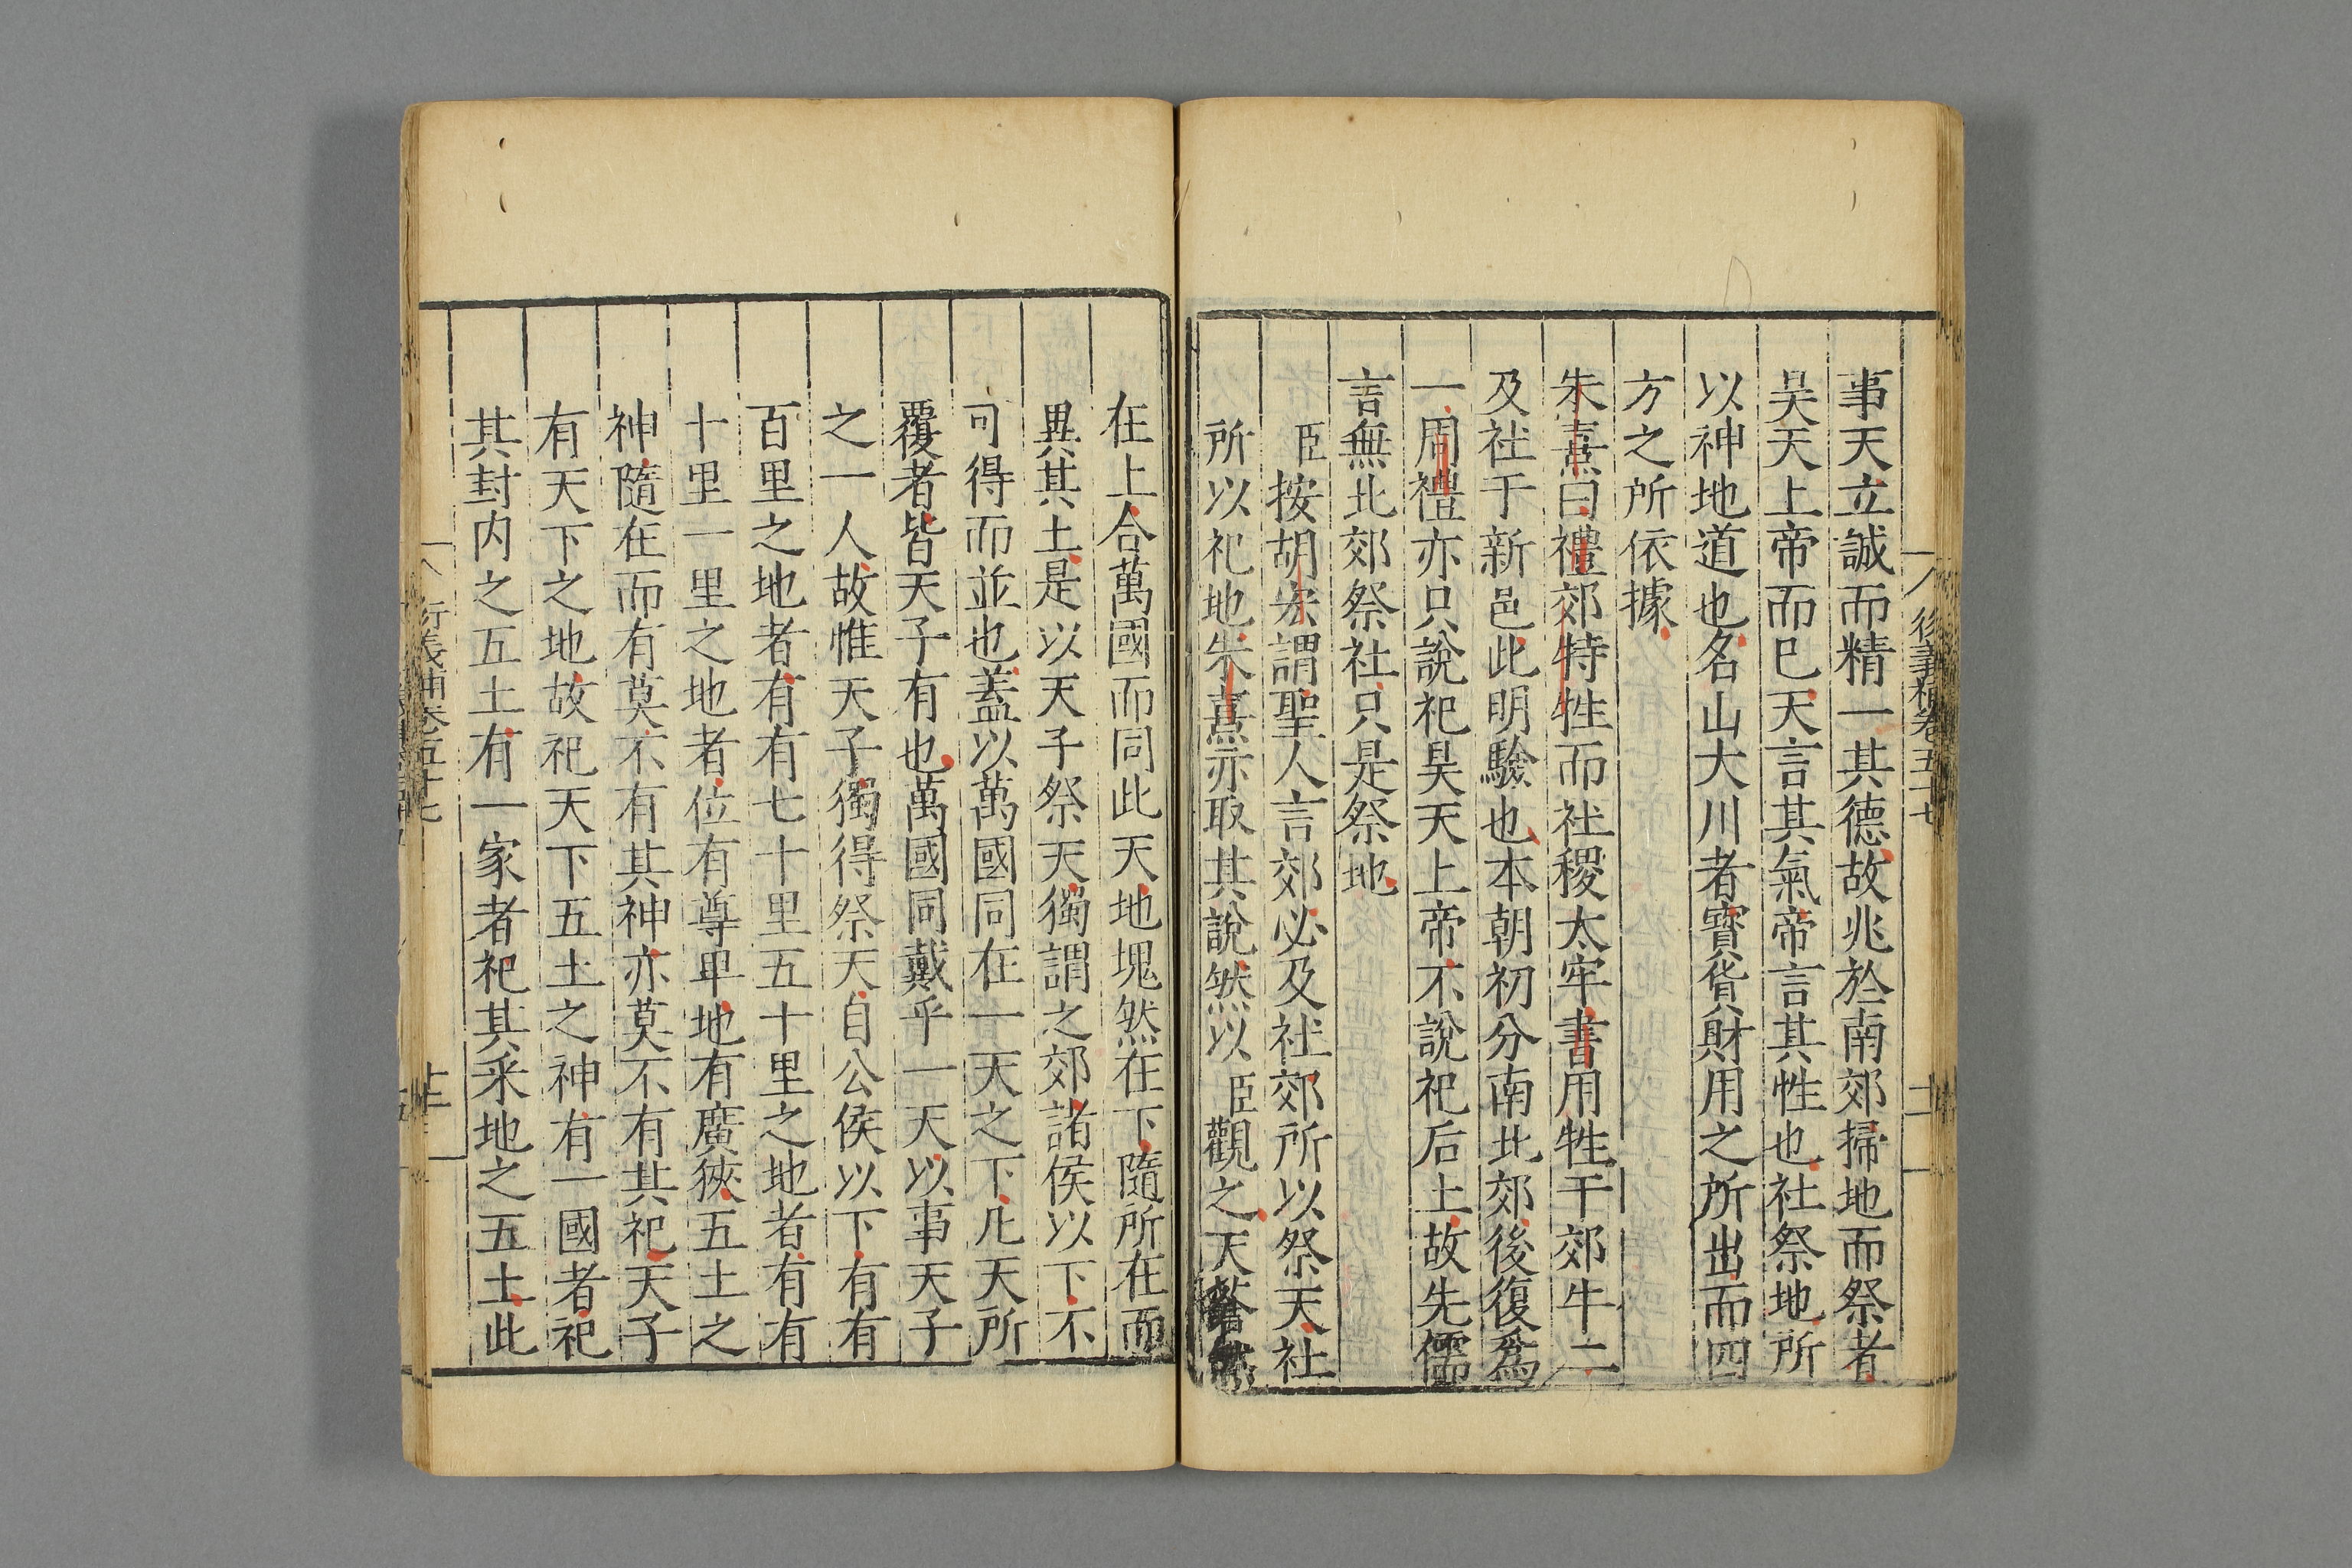 事天立誠而精一其德故兆於南郊掃地而祭者
吴天上帝而巳天言其氣帝言其性也社祭地所
以神地道也名山大川者寶貨財用之所出而四
方之所依據
朱熹曰禮郊特牲而社稷太牢書用牲于郊牛二
及社于新邑此明驗也本朝初分南北郊後復爲
一周禮亦只說祀昊天上帝不說祀后土故先儒
言無北郊祭社只是祭地
臣按胡宏謂聖人言郊必及社郊所以祭天社
所以祀地朱熹亦取其說然以臣觀之天
在上合萬國而同此天地塊然在下隨所在而
異其土是以天子祭天獨謂之郊諸侯以下不
可得而並也蓋以萬國同在一天之下凡天所
覆者皆天子有也萬國同戴乎一天以事天子
之一人故惟天子獨得祭天自公侯以下有有
百里之地者有有七十里五十里之地者有有
十里一里之地者位有尊卑地有廣狹五土之
神隨在而有莫不有其神亦莫不有其祀天子
有天下之地故祀天下五土之神有一國者祀
其封内之五土有一家者祀其采地之五土此
衍義補卷五十七